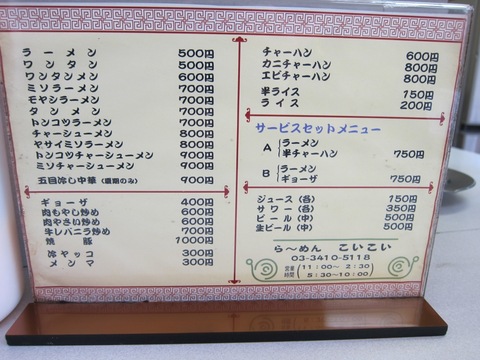 ラーメン 500円
ワンタン 500円
ワンタンメン 600円
ミソラーメン 700円
モヤシラーメン 700円
タンメン 700円
トンコツラーメン 700円
チャーシューメン 800円
ヤサイミソラーメン 800円
トンコツチャーシューメン 900円
ミソチャーシューメン 900円
五目冷し中華(夏期のみ) 900円
ギョーザ 400円
肉もやし炒め 600円
肉やさい炒め 600円
牛レバニラ炒め 700円
焼豚 1000円
冷ヤッコ 300円
メンマ 300円
チャーハン 600円
カニチャーハン 800円
エビチャーハン 800円
半ライス 150円
ライス 200円
サービスセットメニュー
A ラーメン
半チャーハン 750円
B ラーメン
ギョーザ 750円
ジュース(各) 150円
サワー(各) 350円
ビール(中) 500円
生ビール(中) 500円
ら〜めん こいこい
03-3410-5118
営業時間 11:00〜2:30
5:30〜10:00